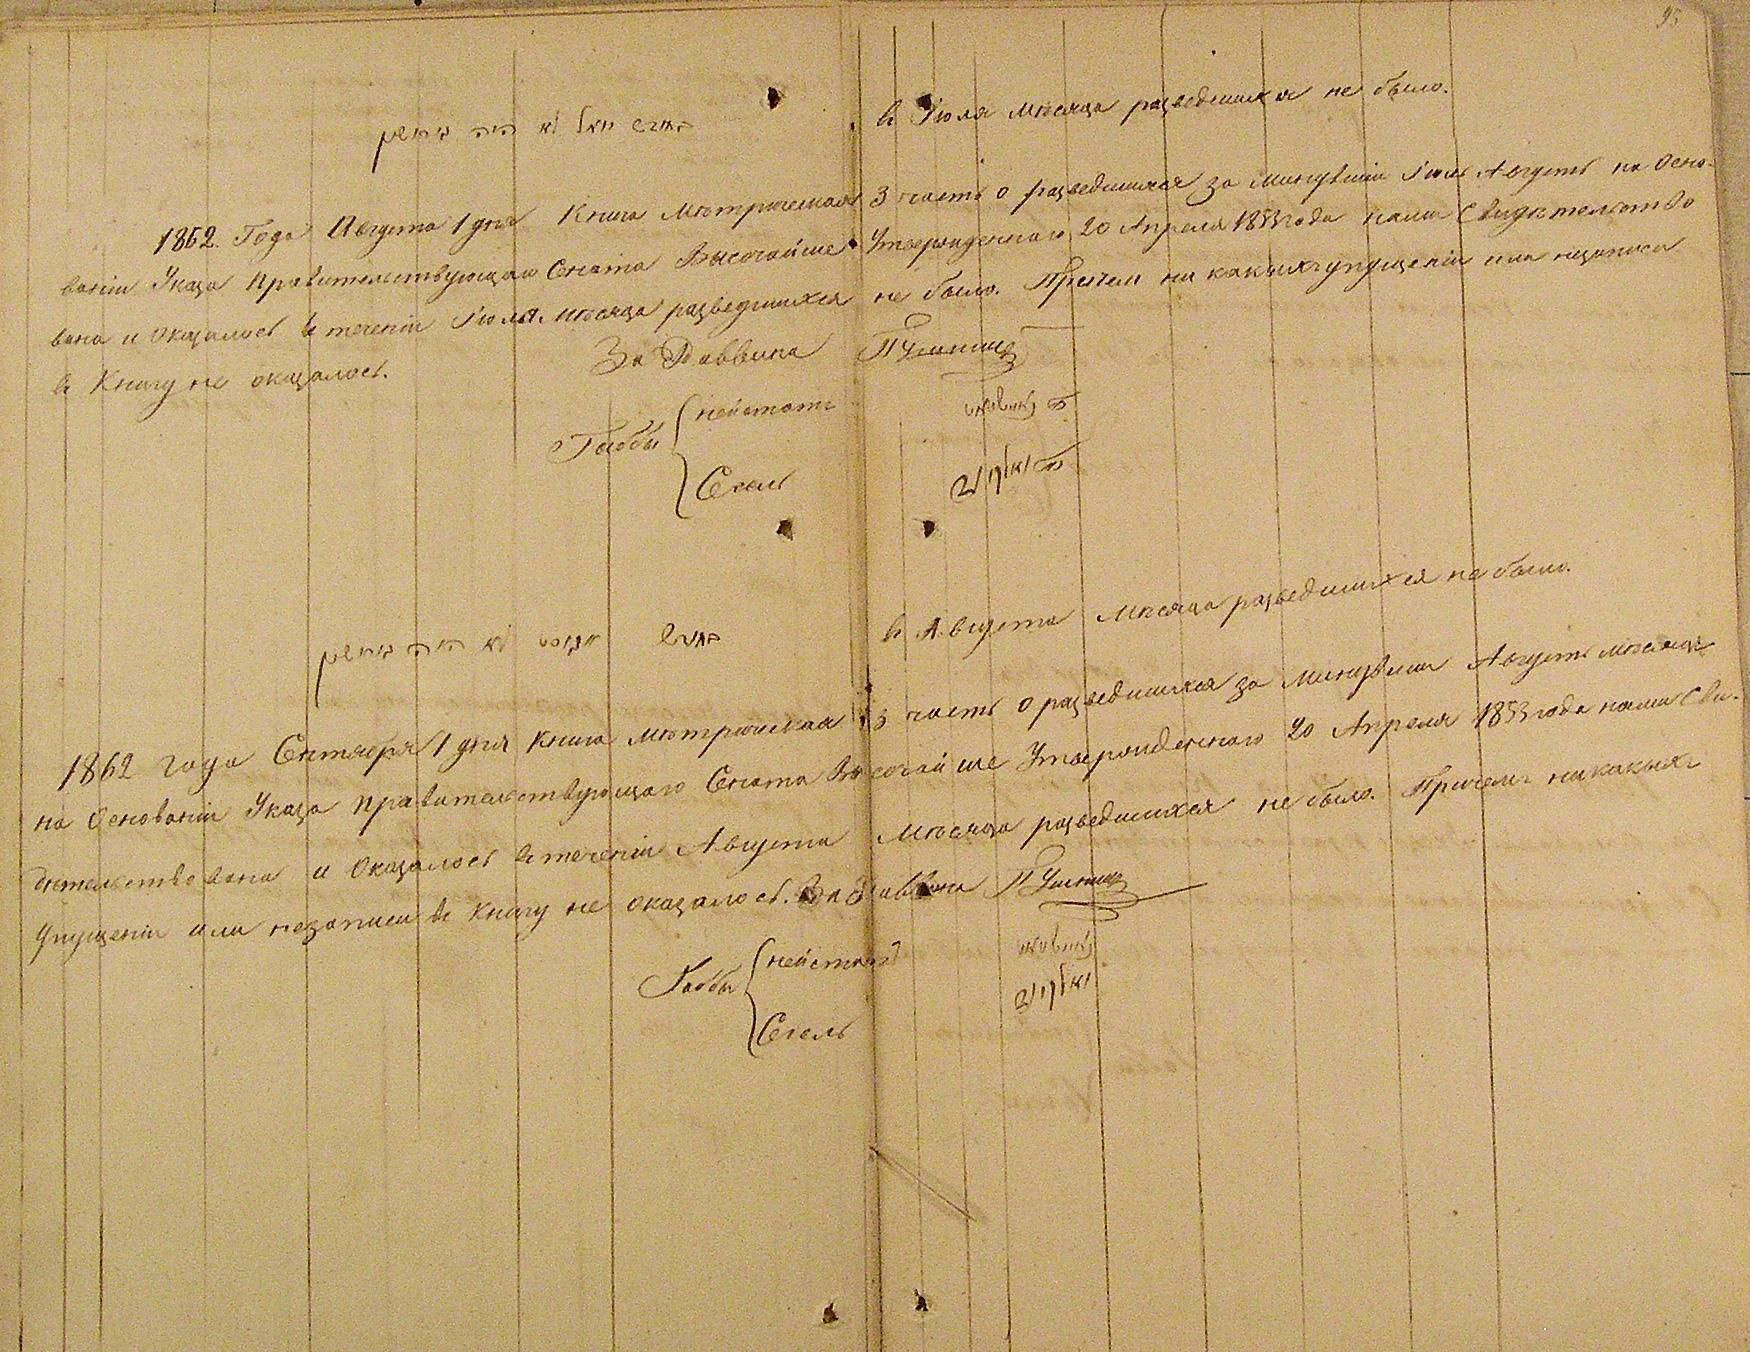 בחודש יואל לא היה גירושין
в Іюля мѣсяца разведшихся не было.
1862. Года Августа 1 дня Книга Метрическая 3 часть о разведшихся за минувшій Іюль Августъ на Осно-
ваніи Указа Правительствующаго Сената Высочайше Утвержденнаго 20 Апреля 1853 года нами Свидетельство
вана и Оказалось в теченіи Іюля мѣсяца разведшихся не было. Причем ни каких упущеніи или незаписи
в Книгу не оказалось.
За Раввина
Габбы
Нейштатъ
Сегель
в Августа мѣсяца разведшихся не было.
בחודש אגוסט לא היה גירושין
1862 года Сентября 1 дня Книга Метрическая 3 часть о разведшихся за минувшій Августъ мѣсяцъ
на Основаніи Указа Правительствующаго Сената Высочайше Утвержденнаго 20 Апреля 1853 года нами Сви-
дѣтельствована и Оказалось в теченіи Августа Мѣсяца разведшихся не было. Причемъ никакихъ
Упущеніи или незаписи в Книгу не оказалось. За Раввина
Габбы
Нейштатъ
Сегель